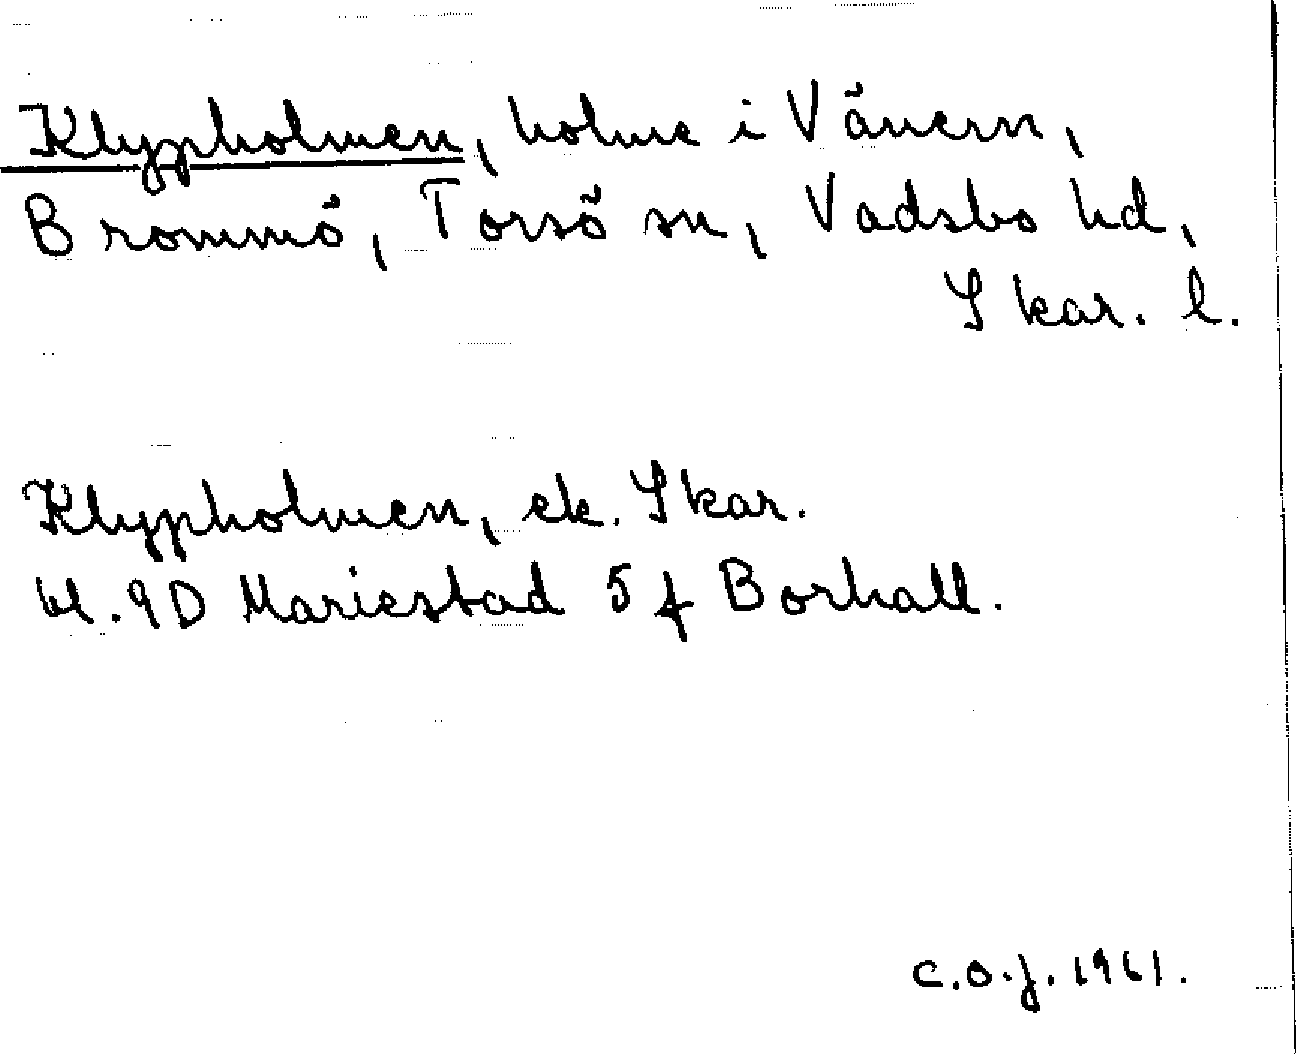 Klypholmen, holme i Vänern,
Brommö, Torsö sn, Vadsbo hd,
Skar. l.
Klypholmen, ek. Skar.
bl. 9D Mariestad 5 f Borhall.
C.O.J. 1961.